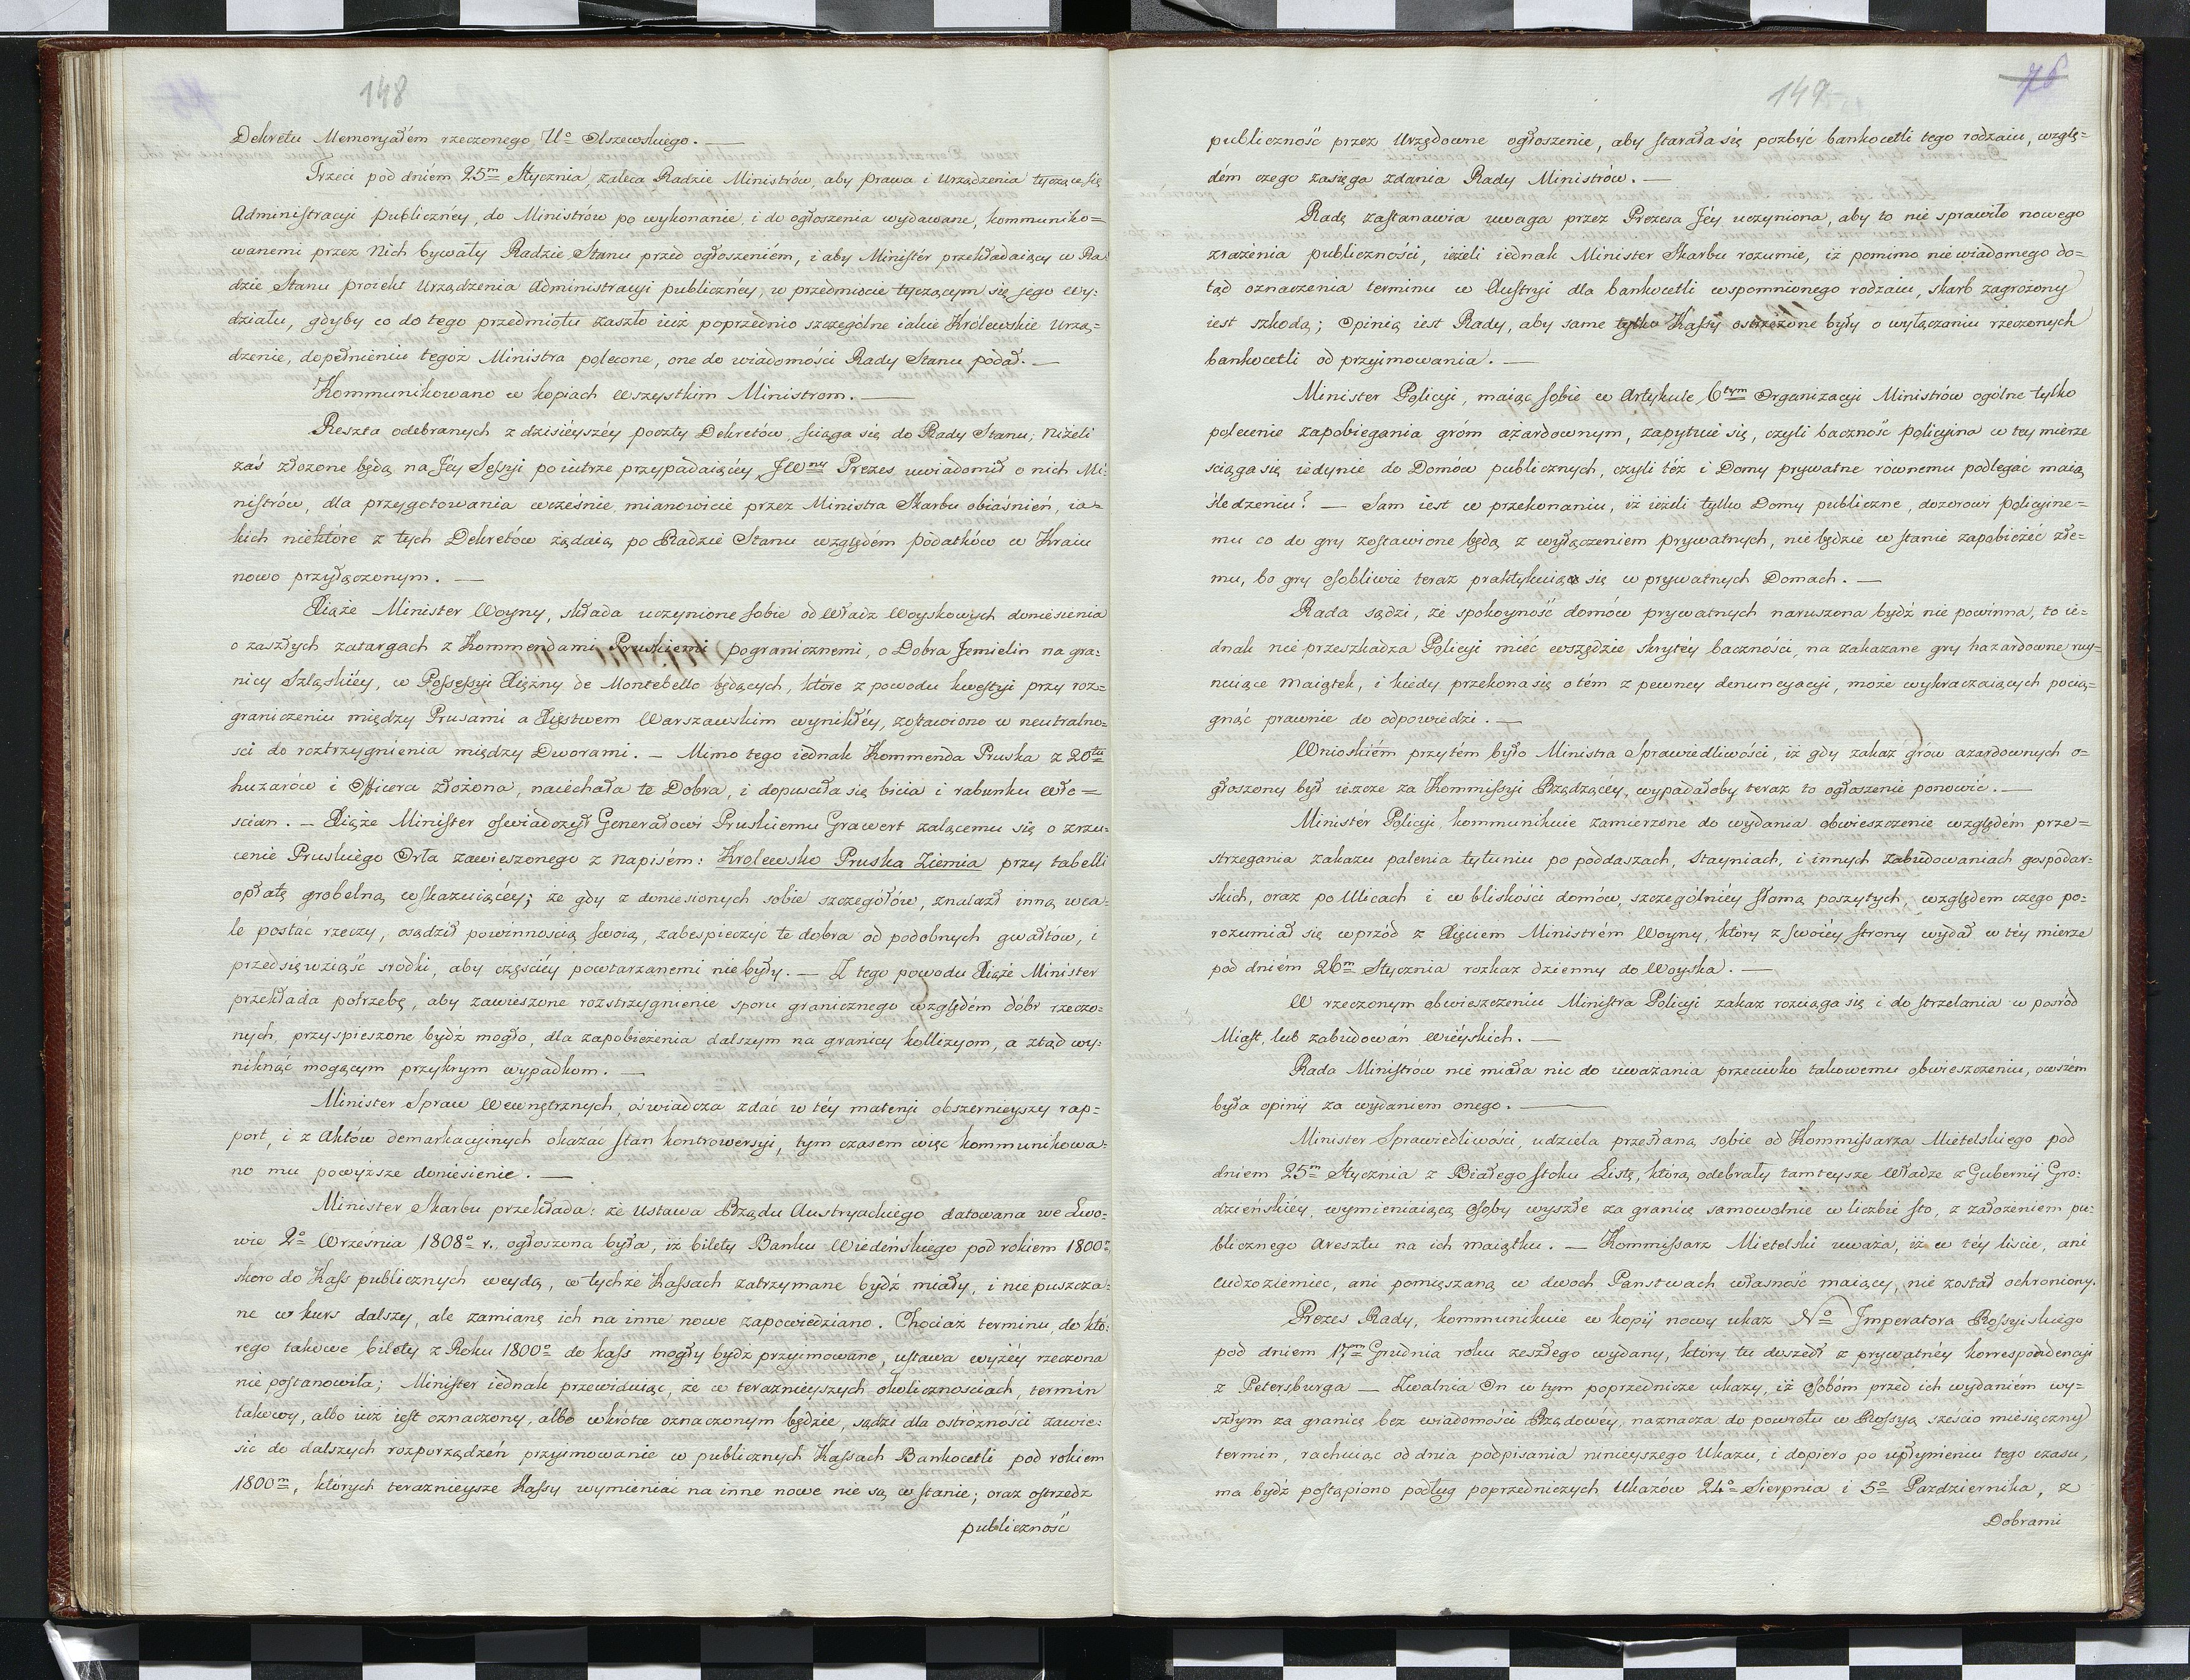 148
Dekretu Memoryałem rzeczonego Uo Olszewskiego. —
Trzeci pod dniém 25m Stycznia, zaleca Radzie Ministrów, aby prawa i urządzenia tyczące się
Administracyi publicznéy, do Ministrów po wykonanie i do ogłoszenia wydawane, kommuniko=
wanemi przez Nich bywały Radzie Stanu przed ogłoszeniém, i aby Minister przekładaiący w Ra
dzie Stanu proiekt Urządzenia Administracyi publicznéy, w przedmiocie tyczącym się jego Wy=
działu, gdyby co do tego przedmiotu zaszło iuż poprzednio szczególne iakie Królewskie Urzą=
dzenie, dopełnieniu tegoż Ministra polecone, one do wiadomości Rady Stanu podał. —
Kommunikowano w kopiach Wszystkim Ministrom. —
Reszta odebranych z dzisiéyszéy poczty Dekretów, sciąga się do Rady Stanu; niżeli
zaś złożone będą na Jéy Sessyi po iutrze przypadaiącéy JWny Prezes uwiadomił o nich Mi=
nistrów, dla przygotowania wcześnie, mianowicie przez Ministra Skarbu obiaśnień, ia=
kich niektóre z tych Dekretów żądaią po Radzie Stanu względém podatków w Kraiu
nowo przyłączonym. —
Xiąże Minister Woyny, składa uczynione sobie od Władz Woyskowych doniesienia
o zaszłych zatargach z Kommendami Pruskiemi pogranicznemi, o Dobra Jemielin na gra=
nicy Szląskiéy, w Possessyi Xiężny de Montebello będących, które z powodu kwestyi przy roz=
graniczeniu między Prusami a Xięstwem Warszawskim wynikłéy, zostawiono w neutralno=
sci do roztrzygnienia między Dworami. — Mimo tego iednak Kommenda Pruska z 20tu
huzarów i Officera złożona, naiechała te Dobra, i dopusciła się bicia i rabunku Wło=
scian. — Xiąże Minister oswiadczył Generałowi Pruskiemu Grawert żalącemu się o zrzu=
cenie Pruskiego Orła zawieszonego z napisém: Krolewsko Pruska Ziemia przy tabelli
opłatę grobelną wskazuiącéy; że gdy z doniesionych sobie szczegółów, znalazł inną wca=
le postać rzeczy, osądził powinnoscią swoią, zabespieczyć te dobra od podobnych gwałtów, i
przedsięwziąść srodki, aby częściéy powtarzanemi nie były. — Z tego powodu Xiąże Minister
przekłada potrzebę, aby zawieszone rozstrzygnienie sporu granicznego względém dóbr rzeczo=
nych, przyspieszone bydź mogło, dla zapobieżenia dalszym na granicy kollizyom, a ztąd wy=
niknąć mogącym przykrym wypadkom. —
Minister Spraw Wewnętrznych, oświadcza zdać w téy materyi obszernieyszy rap=
port, i z Aktów demarkacyinych okazać stan kontrowersyi, tym czasem więc kommunikowa=
no mu powyższe doniesienie. —
Minister Skarbu przekłada: że Ustawa Rządu Austryackiego datowana we Lwo=
wie 2o Września 1808o r., ogłoszona była, iż bilety Banku Wiedeńskiego pod rokiem 1800m,
skoro do Kass publicznych weydą, w tychże Kassach zatrzymane bydź miały, i nie puszcza=
ne w kurs dalszy, ale zamianę ich na inne nowe zapowiedziano. Chociaż terminu, do któ=
rego takowe bilety z Roku 1800o do kass mogły bydź przyimowane, ustawa wyżéy rzeczona
nie postanowiła; Minister iednak przewiduiąc, że w teraznieyszych okolicznosciach, termin
takowy, albo iuż iest oznaczony, albo wkrótce oznaczonym będzie, sądzi dla ostróżności zawie=
sić do dalszych rozporządzeń przyimowanie w publicznych Kassach Bankocetli pod rokiem
1800m, których teraznieysze Kassy wymieniać na inne nowe nie są w stanie; oraz ostrzedz
publiczność
149
76
publiczność przez Urzędowne ogłoszenie, aby starała się pozbyć bankocetli tego rodzaiu, wzglę=
dém czego zasięga zdania Rady Ministrów. —
Radę zastanawia uwaga przez Prezesa Jéy uczyniona, aby to nie sprawiło nowego
zrażenia publiczności, ieżeli iednak Minister Skarbu rozumie, iż pomimo niewiadomego do=
tąd oznaczenia terminu w Austryi dla bankocetli wspomnionego rodzaiu, skarb zagrożony
iest szkodą; Opinią iest Rady, aby same tylko Kassy ostrzeżone były o wyłączaniu rzeczonych
bankocetli od przyimowania. —
Minister Policyi, maiąc sobie w Artykule 6tym Organizacyi Ministrów ogólne tylko
polecenie zapobiegania gróm ażardownym, zapytuie się, czyli baczność policyina w tey mierze
sciąga się iedynie do Domów publicznych, czyli téż i Domy prywatne równemu podlegać maią
śledzeniu? — Sam iest w przekonaniu, iż ieżeli tylko Domy publiczne, dozorowi policyine=
mu co do gry zostawione będą z wyłączeniem prywatnych, nie będzie w stanie zapobieżéć złe=
mu, bo gry osobliwie teraz praktykuią się w prywatnych Domach. —
Rada sądzi, że spokoyność domów prywatnych naruszona bydź nie powinna, to ie=
dnak nie przeszkadza Policyi miéć wszędzie skrytéy baczności, na zakazane gry hazardowne ruy=
nuiące maiątek, i kiedy przekona się o tém z pewney denuncyacyi, może wykraczaiących pocią=
gnąć prawnie do odpowiedzi. —
Wnioskiém przytém było Ministra Sprawiedliwości, iż gdy zakaz grów azardownych o=
głoszony był ieszcze za Kommissyi Rządzącéy, wypadałoby teraz to ogłoszenie ponowić. —
Minister Policyi, kommunikuie zamierzone do wydania obwieszczenie względém prze=
strzegania zakazu palenia tytuniu po poddaszach, stayniach, i innych zabudowaniach gospodar=
skich, oraz po Ulicach i w bliskości domów, szczególniéy słomą poszytych, względem czego po=
rozumiał się wprzód z Xięciem Ministrém Woyny, który z swoiéy strony wydał w téy mierze
pod dniém 26m Stycznia rozkaz dzienny do Woyska. —
W rzeczonym obwieszczeniu Ministra Policyi zakaz rozciąga się i do strzelania w pośród
Miast, lub zabudowań Wiéyskich. —
Rada Ministrów nie miała nic do uważania przeciwko takowemu obwieszczeniu, owszém
była opinij za wydaniem onego. —
Minister Sprawiedliwości, udziela przesłaną sobie od Kommissarza Mietelskiego pod
dniem 25m Stycznia z Białego stoku Listę, którą odebrały tamteysze Władze z Gubernij Gro=
dzieńskiéy, wymieniaiącą osoby wyszłe za granicę samowolnie w liczbie sto, z założeniem pu=
blicznego Aresztu na ich maiątku. — Kommissarz Mietelski uważa, iż w téy liscie, ani
cudzoziemiec, ani pomięszaną w dwoch Panstwach własność maiący, nie został ochroniony.
Prezes Rady, kommunikuie w kopij nowy ukaz No Imperatora Rossyiskiego
pod dniem 17m Grudnia roku zeszłego wydany, który tu doszedł z prywatnéy korrespondencyi
z Petersburga — Zwalnia On w tym poprzednicze ukazy, iż osobóm przed ich wydaniém wy=
szłym za granicę bez wiadomości Rządowéy, naznacza do powrotu w Rossyą sześcio miesięczny
termin, rachuiąc od dnia podpisania ninieyszego Ukazu, i dopiero po upłynieniu tego czasu,
ma bydź postąpiono podług poprzedniczych Ukazów 24o Sierpnia i 5o Pazdziernika, z
Dobrami